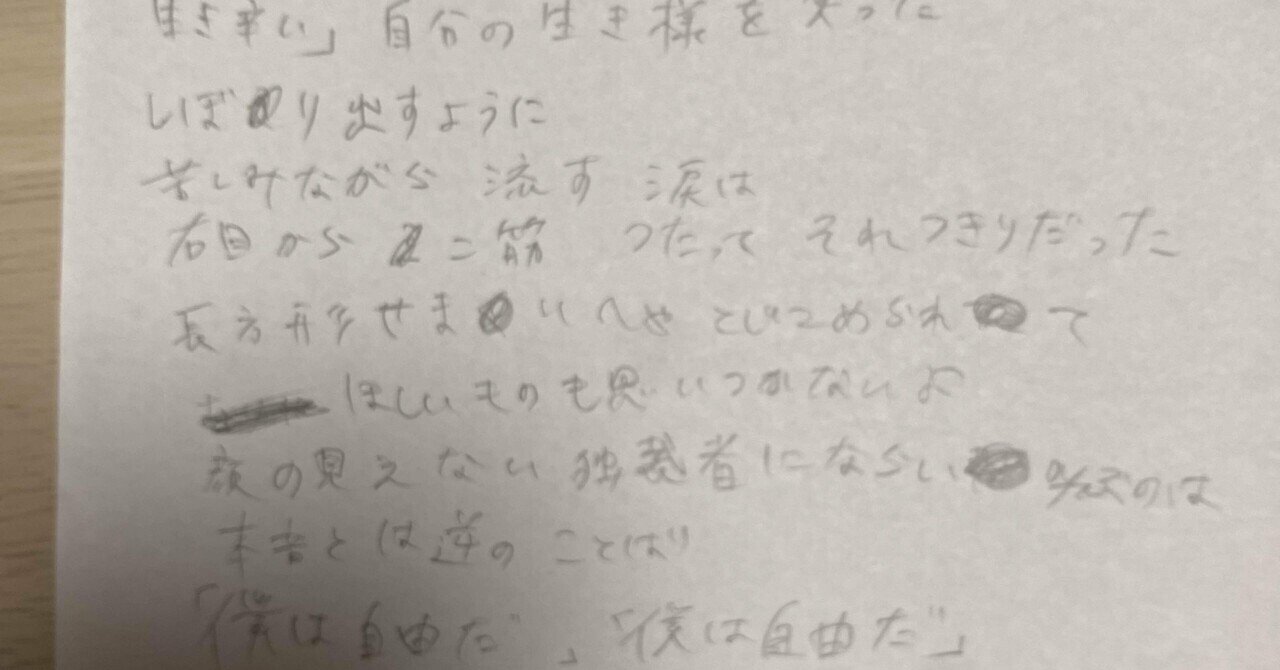 生き辛い」自分の生き様を笑った
しぼり出すように
苦しみながら 流す 涙は
右目から 二筋 つたって それっきりだった
長方形せまいへや とじこめられて
ほしいものも思いつかないよ
顔の見えない独裁者にならい 叫ぶのは
本音とは逆のことばり
「僕は自由だ」「僕は自由だ」